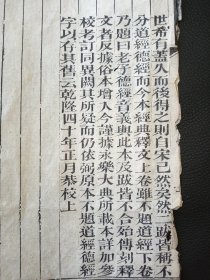 世希有蓋久而後得之則自宋已然矣然二跋皆稱不
分道經德經而今本經典釋文上卷雖不題道經下卷
乃題曰老子德經音義與此本及跋皆不合殆傳刻釋
文者反據俗本增入今謹據永樂大典所載本詳加參
校考訂同異闕其所疑而仍依弼原本不題道經德經
字以存其舊云乾隆四十年正月恭校上